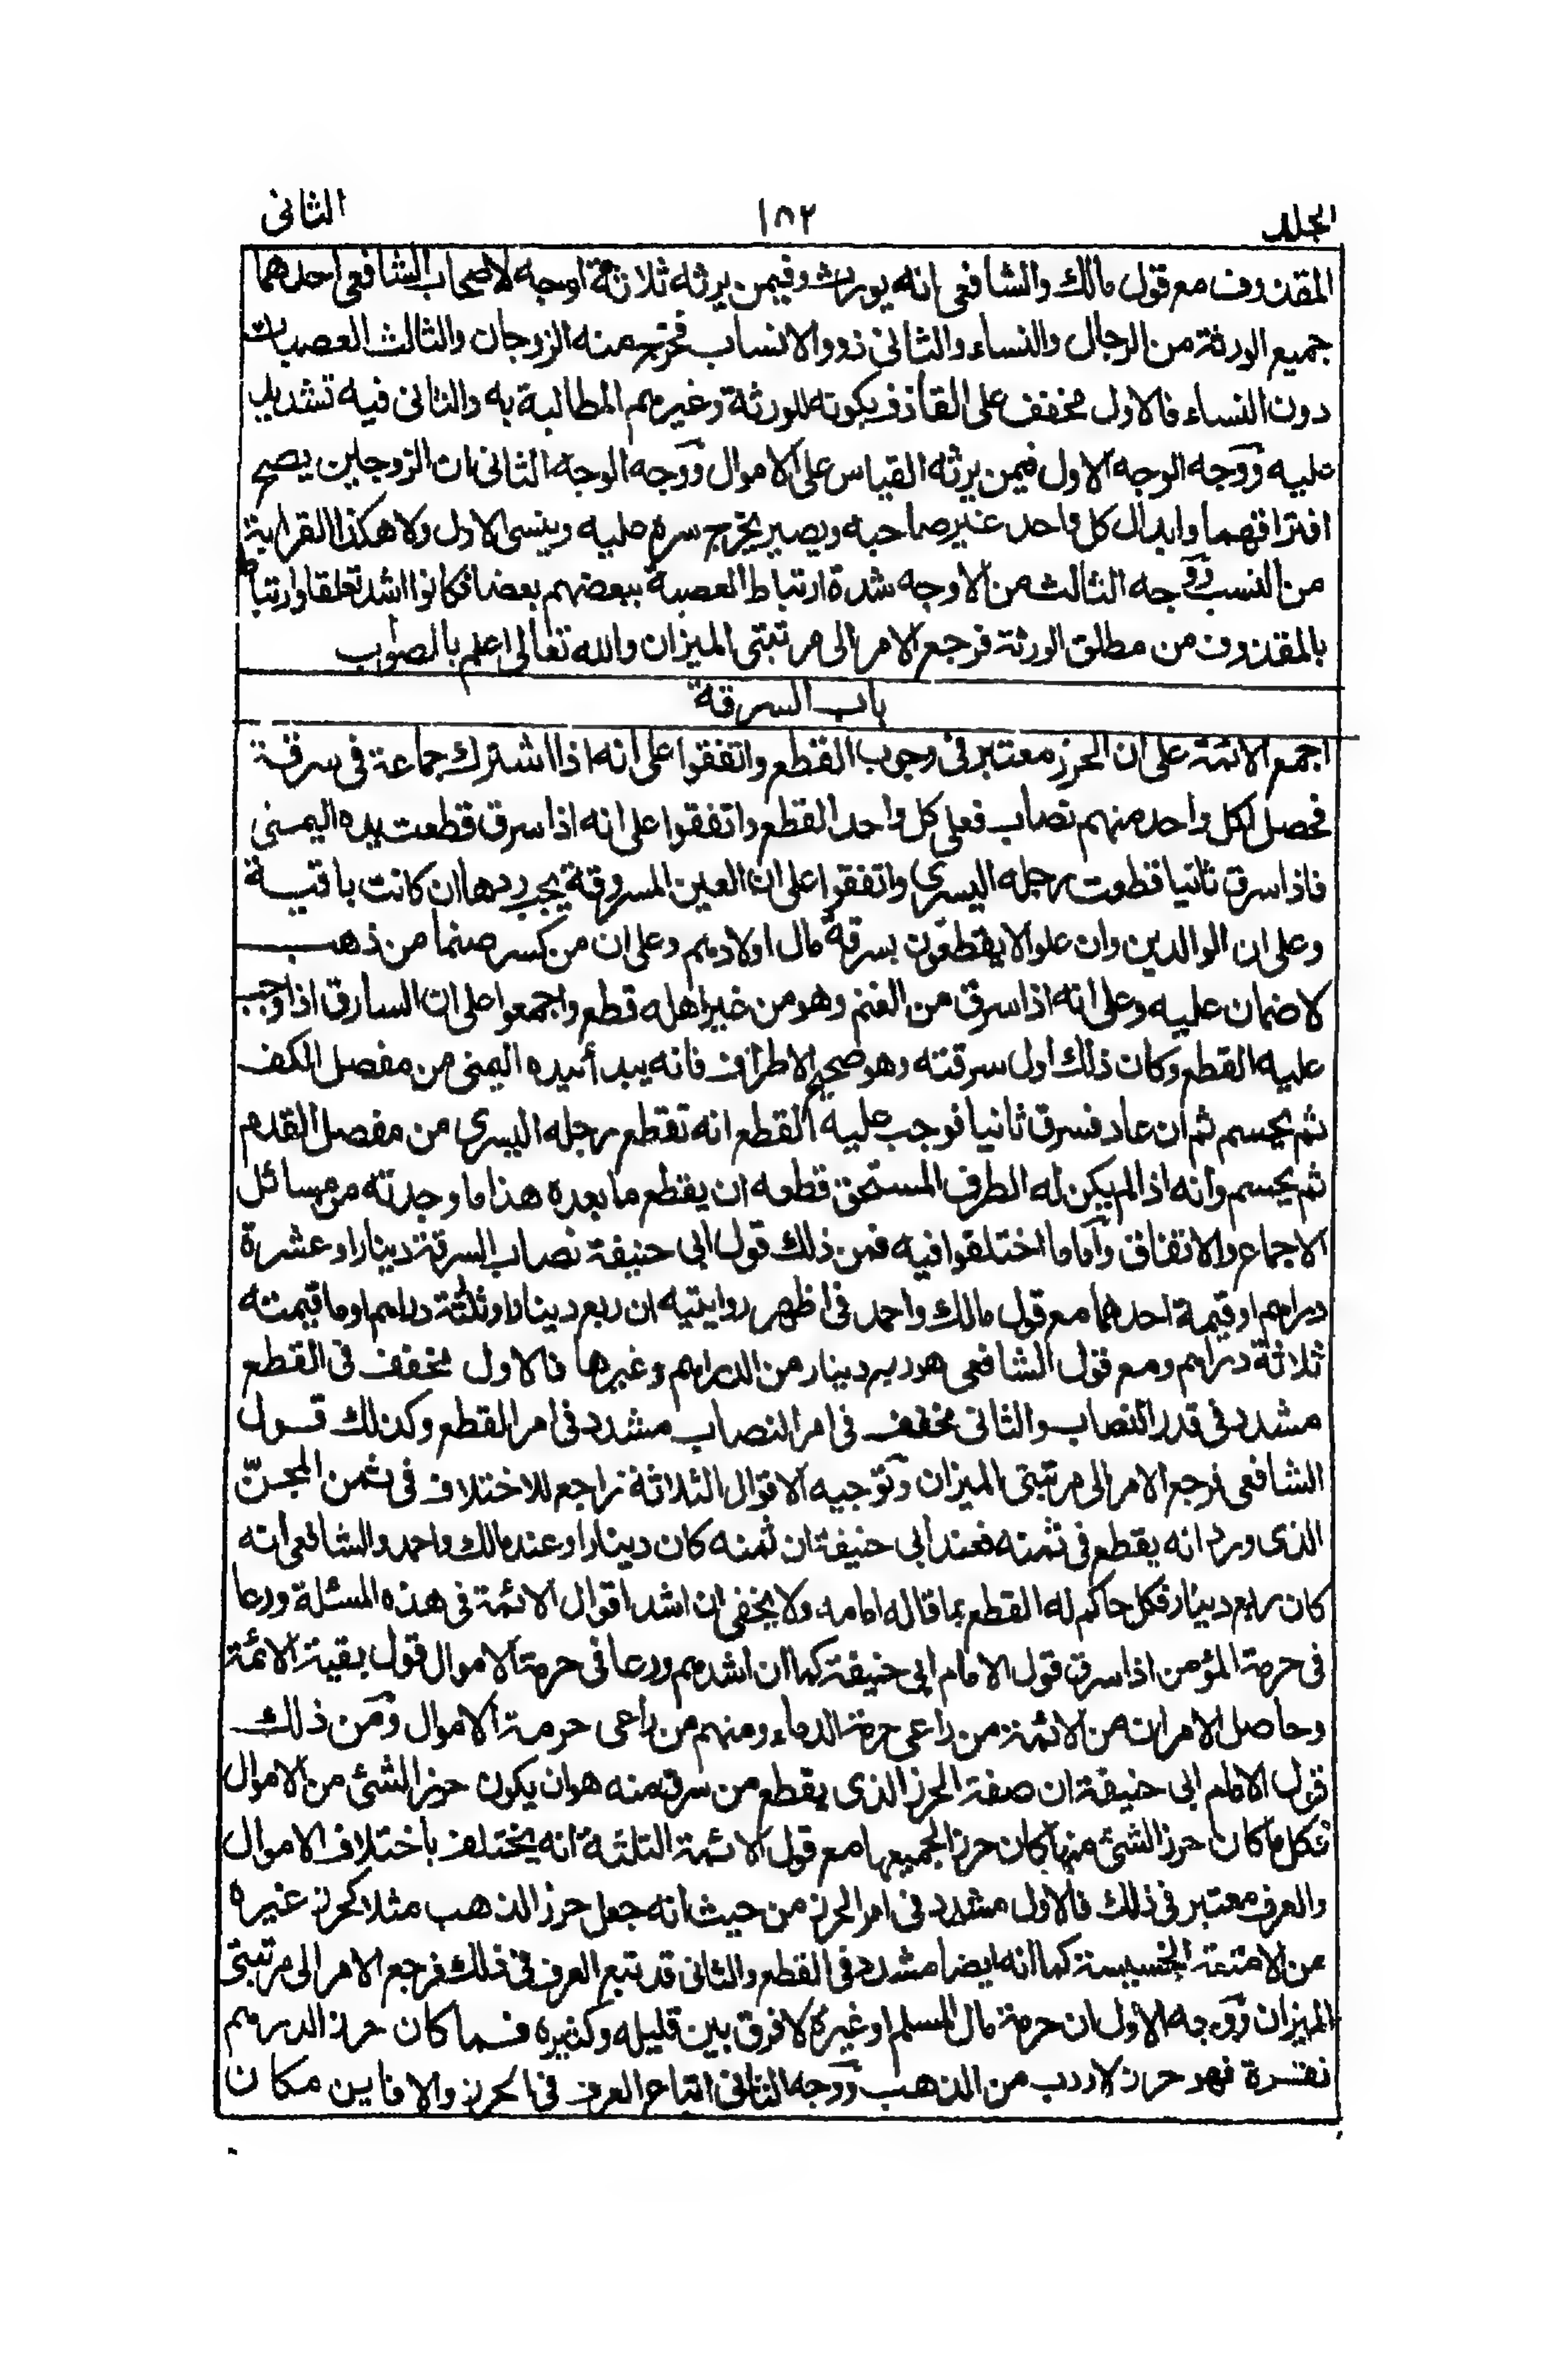 الجلد ١٥٢ الثانى
المقذوف مع قول مالك والشافعى انه يورث وفيمن يرثه ثلاثة اوجه لاصحاب الشافعى احدهما
جميع الورثة من الرجال والنساء والثانى ذوو الانساب فخرج منه الزوجان والثالث العصبات
دون النساء فالاول مخفف على القاذف بكونه للورثة وغيرهم المطالبة به والثانى فيه تشديد
عليه ووجه الوجه الاول فيمن يرثه القياس على الاموال ووجه الوجه الثانى ان الزوجين يصح
افتراقهما وابدال كل واحد غير صاحبه ويصير يخرج سره عليه وينسى الاول ولا هكذا القرابة
من النسب ووجه الثالث من الاوجه شدة ارتباط العصبة ببعضهم بعضا فكانوا اشد تعلقا وارتباطا
بالمقذوف من مطلق الورثة فرجع الامر الى مرتبتى الميزان والله تعالى اعلم بالصواب
باب السرقة
اجمع الائمة على ان الحرز معتبر فى وجوب القطع واتفقوا على انه اذا اشترك جماعة فى سرقة
فحصل لكل واحد منهم نصاب فعلى كل واحد القطع واتفقوا على انه اذا سرق قطعت يده اليمنى
فاذا سرق ثانيا قطعت رجله اليسرى واتفقوا على ان العين المسروقة يجب ردها ان كانت باقية
وعلى ان الوالدين وان علوا لا يقطعون بسرقة مال اولادهم وعلى ان من كسر صنما من ذهب
لا ضمان عليه وعلى انه اذا سرق من الغنم وهو من غير اهله قطع واجمعوا على ان السارق اذا وجب
عليه القطع وكان ذلك اول سرقته وهو صحيح الاطراف فانه يبدأ بيده اليمنى من مفصل الكف
ثم يحسم ثم ان عاد فسرق ثانيا فوجب عليه القطع انه تقطع رجله اليسرى من مفصل القدم
ثم يحسم وانه اذا لم يكن له الطرف المستحق قطعه ان يقطع ما بعده هذا ما وجدته من مسائل
الاجماع والاتفاق وأما ما اختلفوا فيه فمن ذلك قول ابى حنيفة نصاب السرقة دينار او عشرة
دراهم او قيمة احدهما مع قول مالك واحمد فى اظهر روايتيه ان ربع دينار او ثلثة دراهم او ما قيمته
ثلاثة دراهم ومع قول الشافعى هو ربع دينار من الدراهم وغيرها فالاول مخفف فى القطع
مشدد فى قدر النصاب والثانى مخفف فى امر النصاب مشدد فى امر القطع وكذلك قول
الشافعى فرجع الامر الى مرتبتى الميزان وتوجيه الاقوال الثلاثة راجع للاختلاف فى ثمن المجنّ
الذى ورد انه يقطع فى ثمنه فعند ابى حنيفة ان ثمنه كان دينارا وعند مالك واحمد والشافعى انه
كان ربع دينار فكل حاكم له القطع بما قاله امامه ولا يخفى ان اشد اقوال الائمة فى هذه المسئلة ورعا
فى حرمة المؤمن اذا سرق قول الامام ابى حنيفة كما ان اشدهم ورعا فى حرمة الاموال قول بقية الائمة
وحاصل الامر ان من الائمة من راعى حرمة الدماء ومنهم من راعى حرمة الاموال ومن ذلك
قول الامام ابى حنيفة ان صفة الحرز الذى يقطع من سرق منه هو ان يكون حرز الشئ من الاموال
فكل ما كان حرز الشئ منها كان حرزا لجميعها مع قول الائمة الثلثة انه يختلف باختلاف الاموال
والعرف معتبر فى ذلك فالاول مشدد فى امر الحرز من حيث انه جعل حرز الذهب مثلا كحرز غيره
من الامتعة الخسيسة كما انه ايضا مشدد فى القطع والثانى قد تبع العرف فى ذلك فرجع الامر الى مرتبتى
الميزان ووجه الاول ان حرمة مال المسلم او غيره لا فرق بين قليله وكثيره فما كان حرز الدرهم
نقرة فهو حرز لاردب من الذهب ووجه الثانى اتباع العرف فى الحرز والا فاين مكان